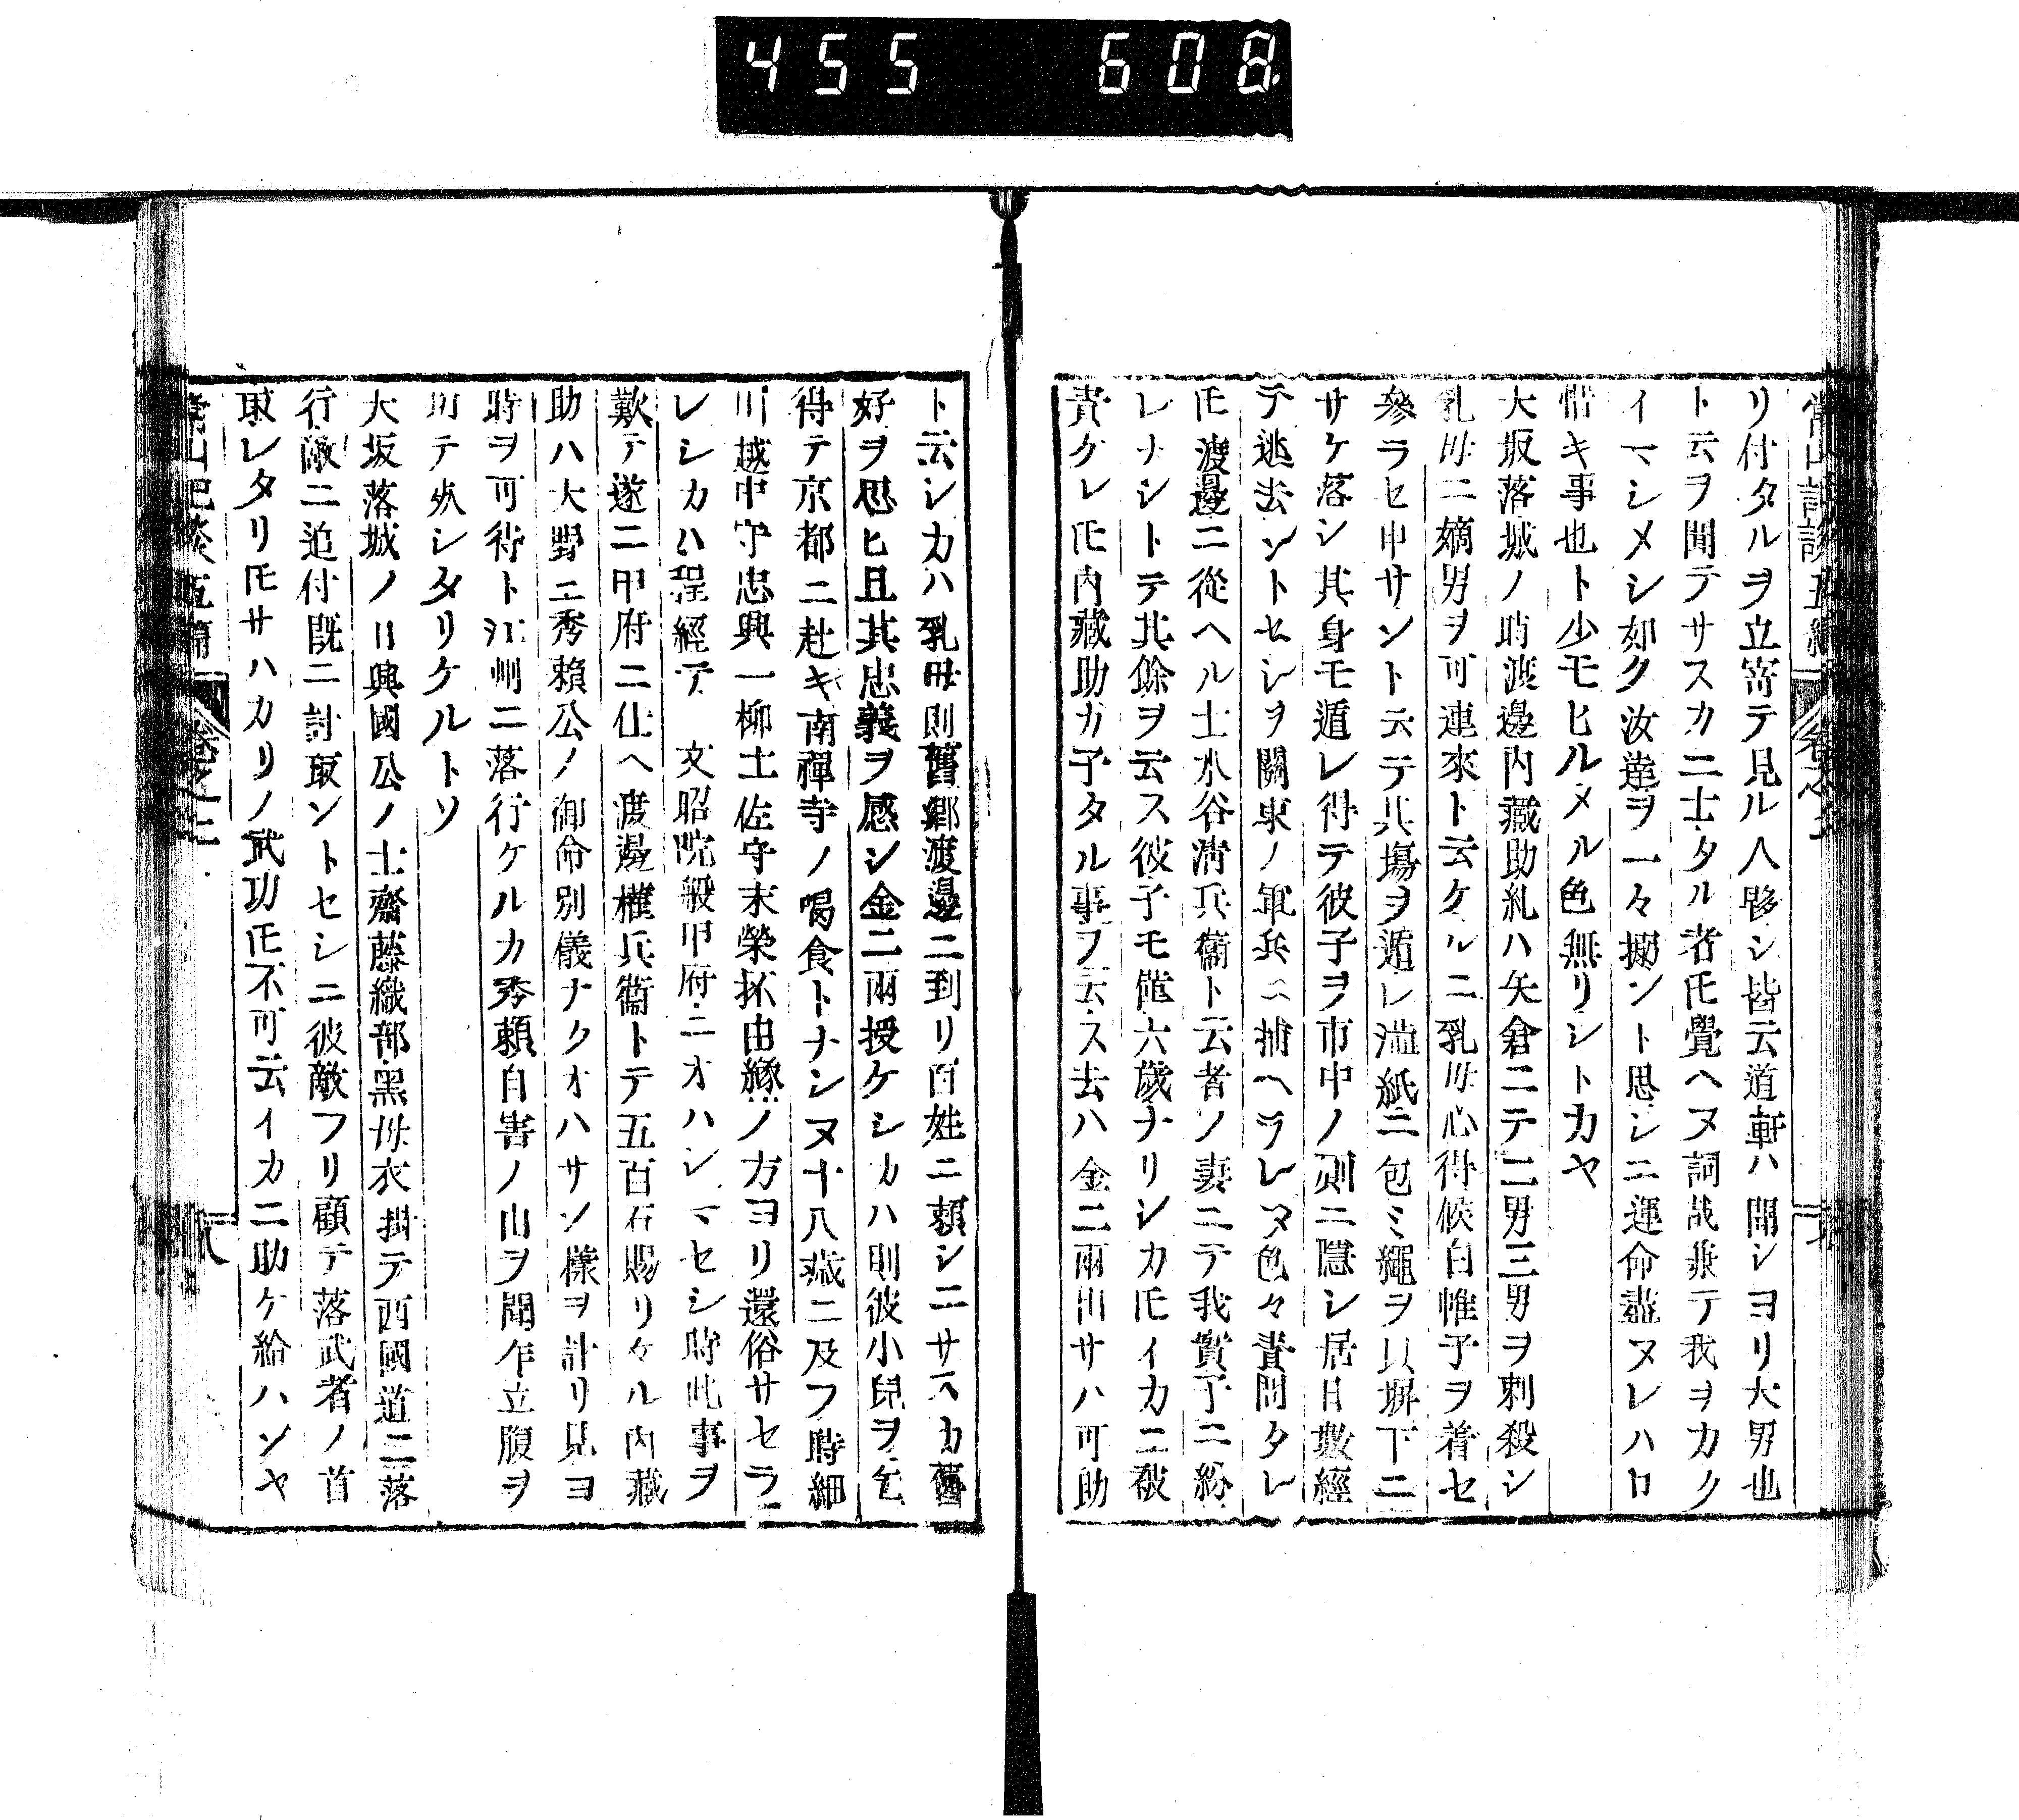 455 608
リ付タルヲ立寄テ見ル人夥シ皆云道軒ハ聞シヨリ大男也
ト云ヲ聞テサスカニ士タル者𪜈覺ヘヌ詞哉兼テ我ヲカク
イマシメシ如ク汝達ヲ一々搦ント思シニ運命盡ヌレハ口
惜キ事也ト少モヒルメル色無リシトカヤ
大坂落城ノ時渡邊内藏助糺ハ矢倉ニテ二男三男ヲ刺殺シ
乳母ニ嫡男ヲ可連來ト云ケルニ乳母心得候白帷子ヲ着セ
參ラセ申サント云テ其場ヲ遁レ澁紙ニ包ミ繩ヲ以塀下ニ
サケ落シ其身モ遁レ得テ彼子ヲ市中ノ厠ニ隱シ居日數經
テ逃去ントセシヲ關東ノ軍兵ニ捕ヘラレヌ色々責問タレ
𪜈渡邊ニ從ヘル士水谷淸兵衞ト云者ノ妻ニテ我實子ニ紛
レナシトテ其餘ヲ云ス彼子モ僅六歲ナリシカ𪜈イカニ被
責ケレ𪜈内藏助カ子タル事ヲ云ス去ハ金二兩出サハ可助
ト云シカハ乳母則舊鄕渡邊ニ到リ百姓ニ賴シニサスカ舊
好ヲ思ヒ且其忠義ヲ感シ金二兩授ケシカハ則彼小兒ヲ乞
得テ京都ニ赴キ南禪寺ノ喝食トナシヌ十八歲ニ及フ時細
川越中守忠興一柳土佐守末榮抔由緣ノ方ヨリ還俗サセラ
レシカハ程經テ 文昭院殿甲府ニオハシマセシ時此事ヲ
歎テ遂ニ甲府ニ仕ヘ渡邊權兵衞トテ五百石賜リケル内藏
助ハ大野ニ秀賴公ノ御命別儀ナクオハサン樣ヲ計リ見ヨ
時ヲ可待ト江州ニ落行ケルカ秀賴自害ノ由ヲ聞乍立腹ヲ
切テ死シタリケルトソ
大坂落城ノ日興國公ノ士齋藤織部黑母衣掛テ西國道ニ落
行敵ニ追付既ニ討取ントセシニ彼敵フリ顧テ落武者ノ首
取レタリ𪜈サハカリノ武功𪜈不可云イカニ助ケ給ハンヤ
常山紀談 五編 卷之三 八